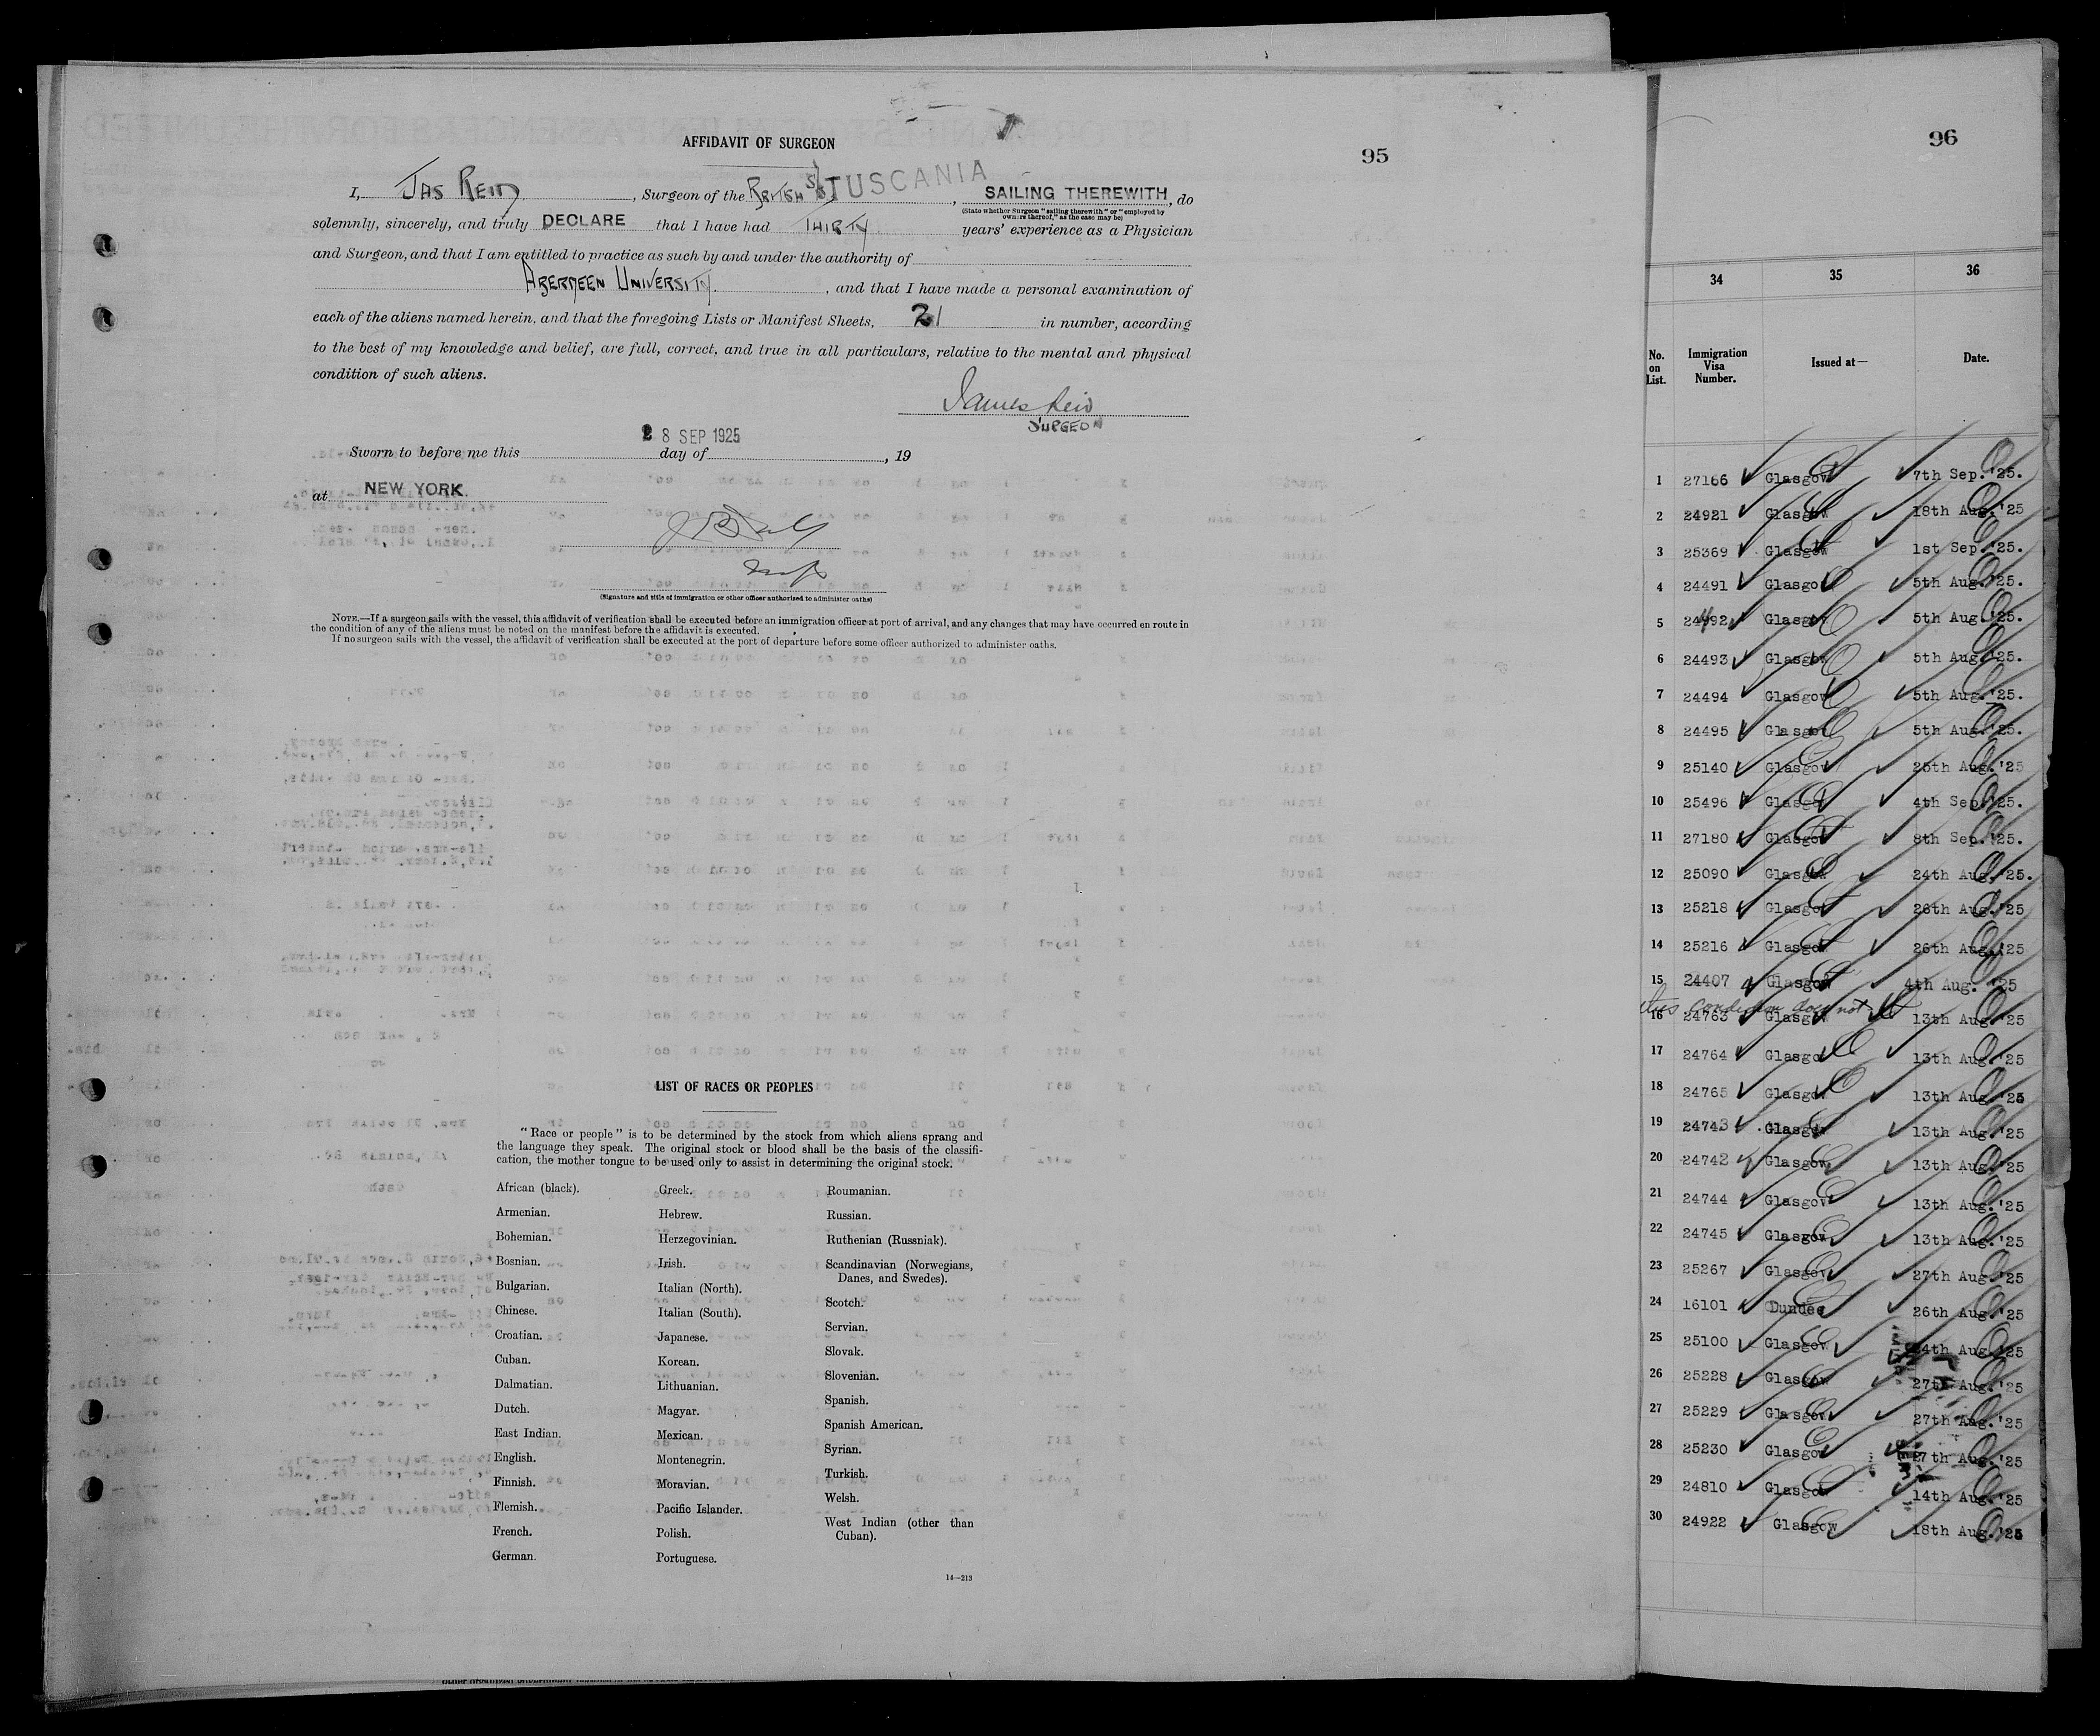 AFFIDAVIT OF SURGEON
95
I, JAS REID, Surgeon of the BRITISH S/S TUSCANIA, SAILING THEREWITH, do
(State whether Surgeon "sailing therewith" or "employed by
owners thereof," as the case may be)
solemnly, sincerely, and truly DECLARE that I have had THIRTY years' experience as a Physician
and Surgeon, and that I am entitled to practice as such by and under the authority of
ABERDEEN UNIVERSITY, and that I have made a personal examination of
each of the aliens named herein, and that the foregoing Lists or Manifest Sheets, 21 in number, according
to the best of my knowledge and belief, are full, correct, and true in all particulars, relative to the mental and physical
condition of such aliens.
James Reid
SURGEON
28 SEP 1925
Sworn to before me this day of , 19
at NEW YORK
(Signature and title of immigration or other officer authorized to administer oaths)
NOTE.—If a surgeon sails with the vessel, this affidavit of verification shall be executed before an immigration officer at port of arrival, and any changes that may have occurred en route in
the condition of any of the aliens must be noted on the manifest before the affidavit is executed.
If no surgeon sails with the vessel, the affidavit of verification shall be executed at the port of departure before some officer authorized to administer oaths.
LIST OF RACES OR PEOPLES
"Race or people" is to be determined by the stock from which aliens sprang and
the language they speak. The original stock or blood shall be the basis of the classifi-
cation, the mother tongue to be used only to assist in determining the original stock.
African (black).
Armenian.
Bohemian.
Bosnian.
Bulgarian.
Chinese.
Croatian.
Cuban.
Dalmatian.
Dutch.
East Indian.
English.
Finnish.
Flemish.
French.
German.
Greek.
Hebrew.
Herzegovinian.
Irish.
Italian (North).
Italian (South).
Japanese.
Korean.
Lithuanian.
Magyar.
Mexican.
Montenegrin.
Moravian.
Pacific Islander.
Polish.
Portuguese.
Roumanian.
Russian.
Ruthenian (Russniak).
Scandinavian (Norwegians,
Danes, and Swedes).
Scotch.
Servian.
Slovak.
Slovenian.
Spanish.
Spanish American.
Syrian.
Turkish.
Welsh.
West Indian (other than
Cuban).
14—213
96
34 35 36
No. on List. Immigration Visa Number. Issued at— Date.
1 27166 Glasgow 7th Sep. '25.
2 24921 Glasgow 18th Aug. '25
3 25369 Glasgow 1st Sep. '25.
4 24491 Glasgow 5th Aug. '25.
5 24492 Glasgow 5th Aug. '25.
6 24493 Glasgow 5th Aug. '25.
7 24494 Glasgow 5th Aug. '25.
8 24495 Glasgow 5th Aug. '25.
9 25140 Glasgow 25th Aug. '25
10 25496 Glasgow 4th Sep. '25.
11 27180 Glasgow 8th Sep. '25.
12 25090 Glasgow 24th Aug. '25.
13 25218 Glasgow 26th Aug. '25
14 25216 Glasgow 26th Aug. '25
15 24407 Glasgow 4th Aug. '25
condition does not
16 24763 Glasgow 13th Aug. '25
17 24764 Glasgow 13th Aug. '25
18 24765 Glasgow 13th Aug. '25
19 24743 Glasgow 13th Aug. '25
20 24742 Glasgow 13th Aug. '25
21 24744 Glasgow 13th Aug. '25
22 24745 Glasgow 13th Aug. '25
23 25267 Glasgow 27th Aug. '25
24 16101 Dundee 26th Aug. '25
25 25100 Glasgow 24th Aug. '25
26 25228 Glasgow 27th Aug. '25
27 25229 Glasgow 27th Aug. '25
28 25230 Glasgow 27th Aug. '25
29 24810 Glasgow 14th Aug. '25
30 24922 Glasgow 18th Aug. '25